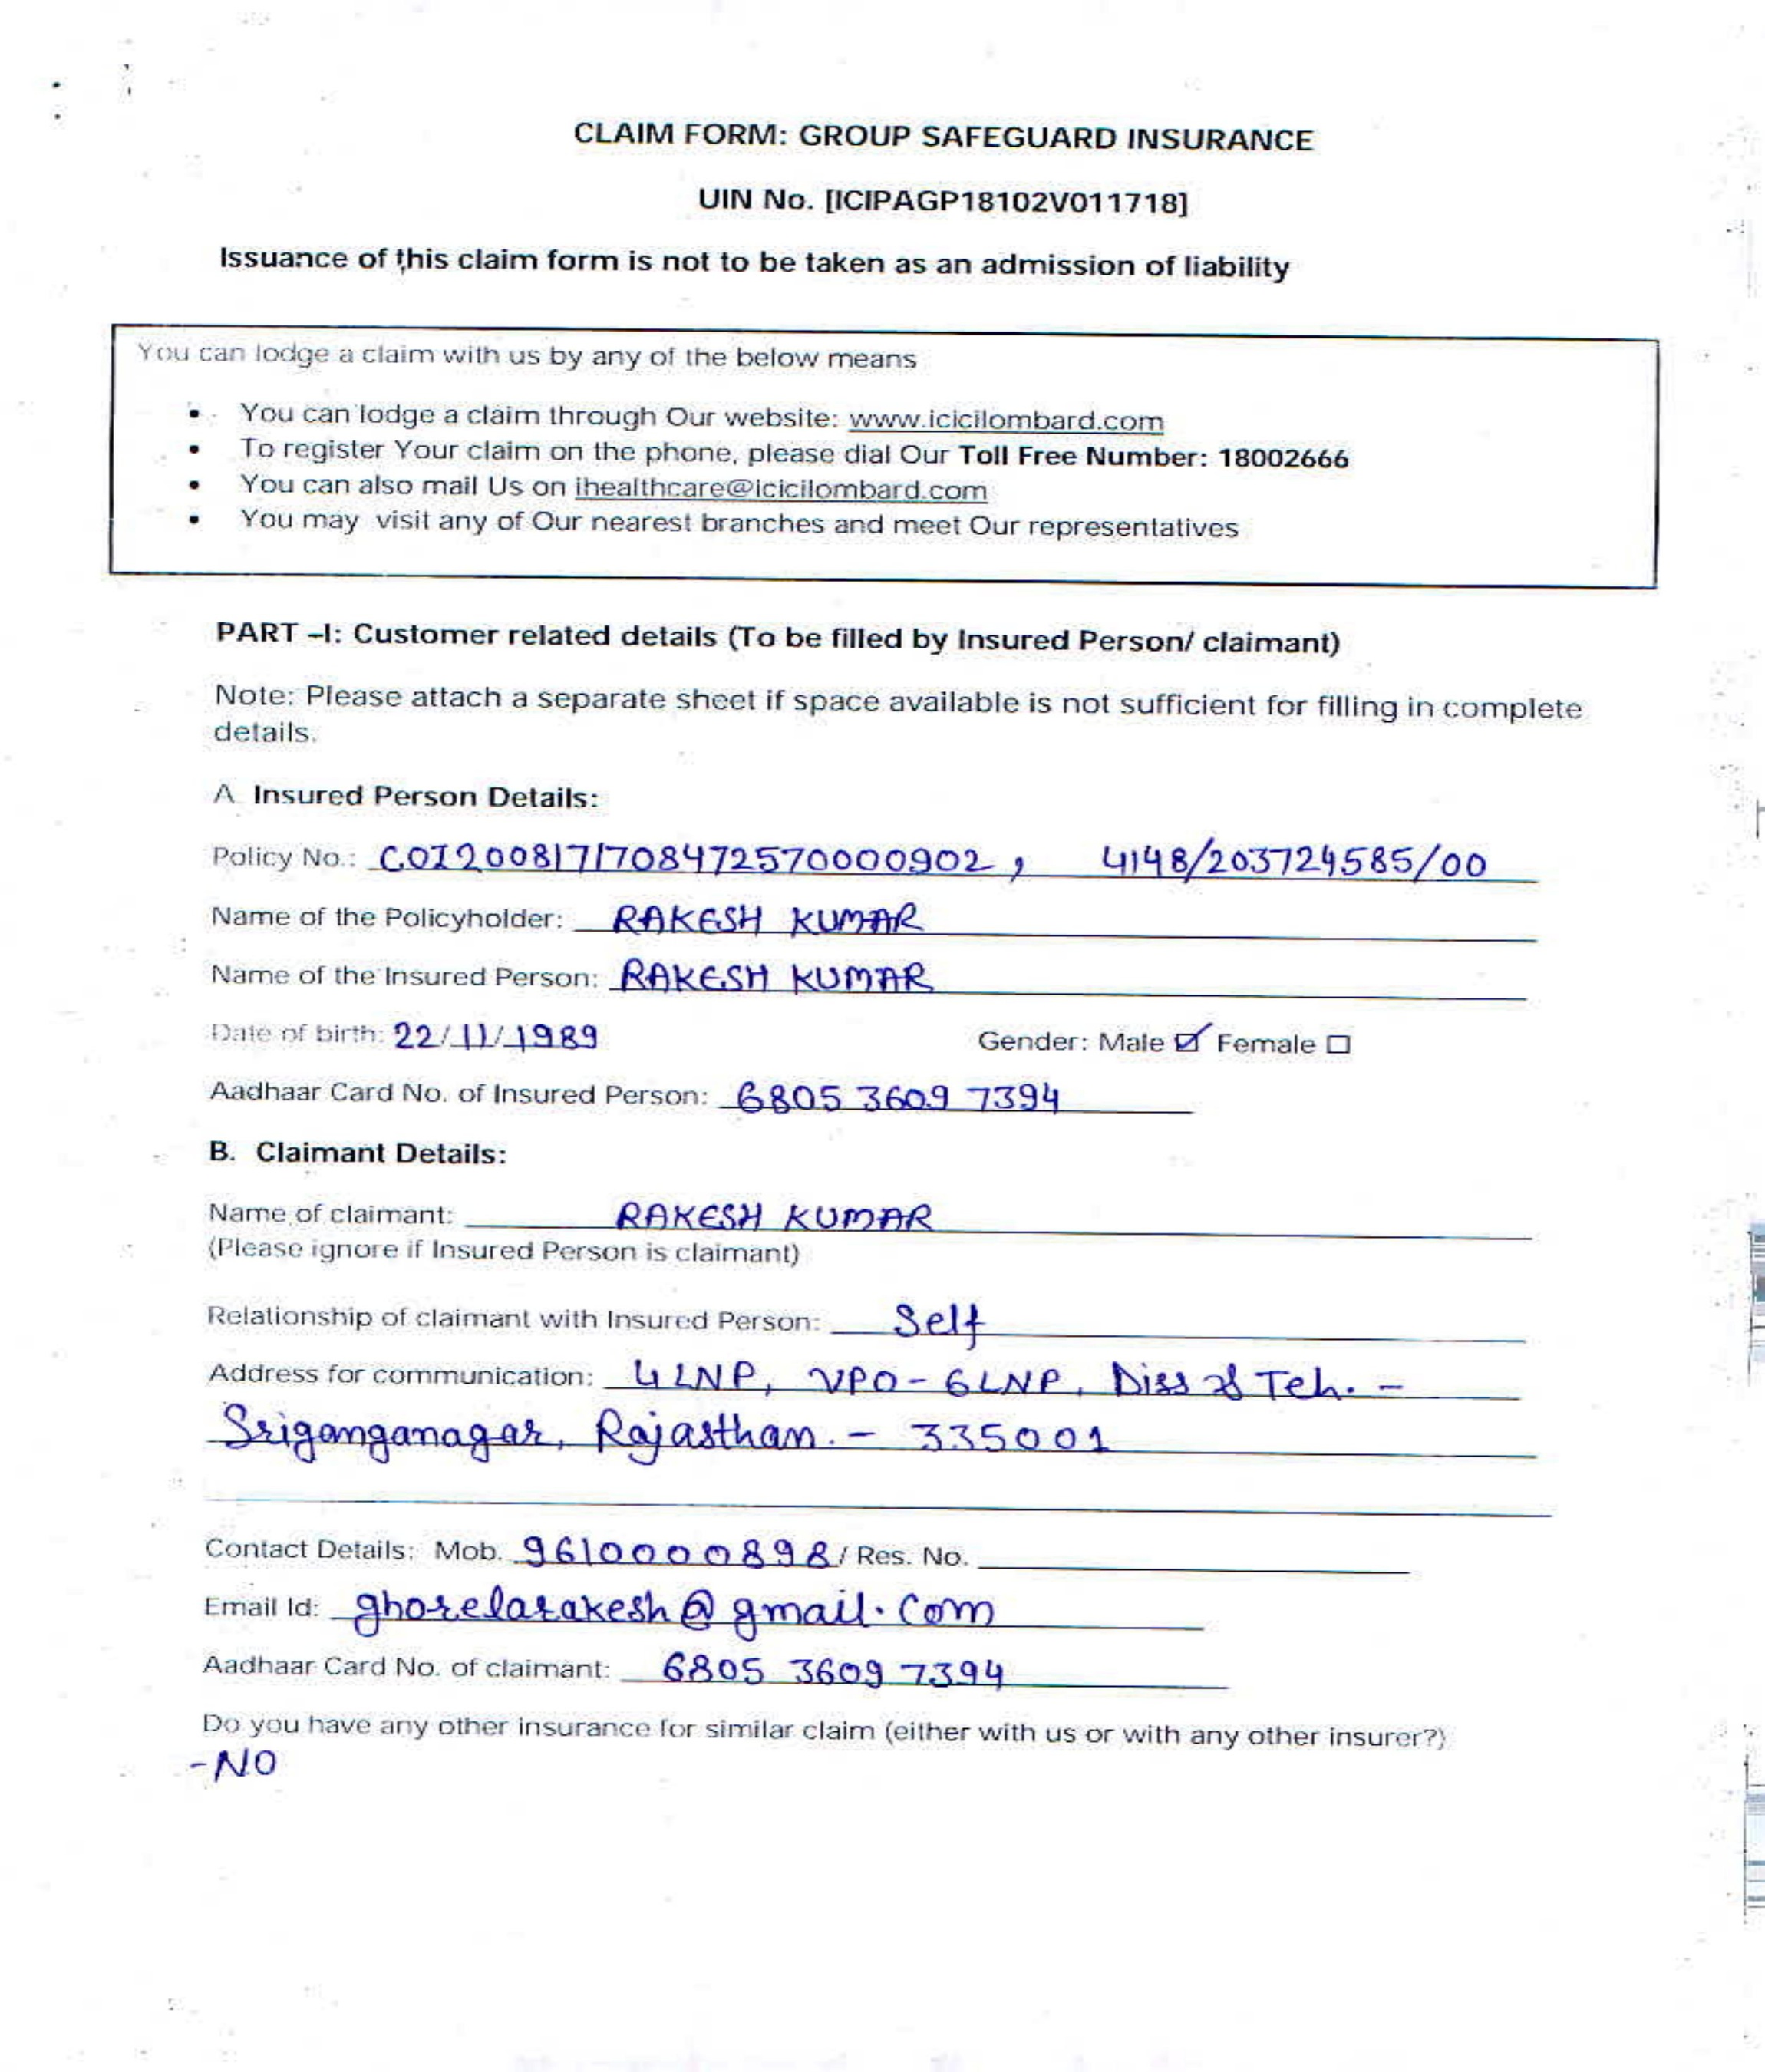 CLAIM FORM: GROUP SAFEGUARD INSURANCE
UIN No. [ICIPAGP18102V011718]
Issuance of this claim form is not to be taken as an admission of liability
You can lodge a claim with us by any of the below means
• You can lodge a claim through Our website: www.icicilombard.com
• To register Your claim on the phone, please dial Our Toll Free Number: 18002666
• You can also mail Us on ihealthcare@icicilombard.com
• You may visit any of Our nearest branches and meet Our representatives
PART –I: Customer related details (To be filled by Insured Person/ claimant)
Note: Please attach a separate sheet if space available is not sufficient for filling in complete
details.
A. Insured Person Details:
Policy No.: COI200817170847257​0000902, 4148/203724585/00
Name of the Policyholder: RAKESH KUMAR
Name of the Insured Person: RAKESH KUMAR
Date of birth: 22/11/1989 Gender: Male ☑ Female ☐
Aadhaar Card No. of Insured Person: 6805 3609 7394
B. Claimant Details:
Name of claimant: RAKESH KUMAR
(Please ignore if Insured Person is claimant)
Relationship of claimant with Insured Person: Self
Address for communication: 4 LNP, VPO - 6 LNP, Diss & Teh. -
Sriganganagar, Rajasthan. - 335001
Contact Details: Mob. 9610000898/ Res. No.
Email Id: ghorelarakesh@gmail.com
Aadhaar Card No. of claimant: 6805 3609 7394
Do you have any other insurance for similar claim (either with us or with any other insurer?)
- NO